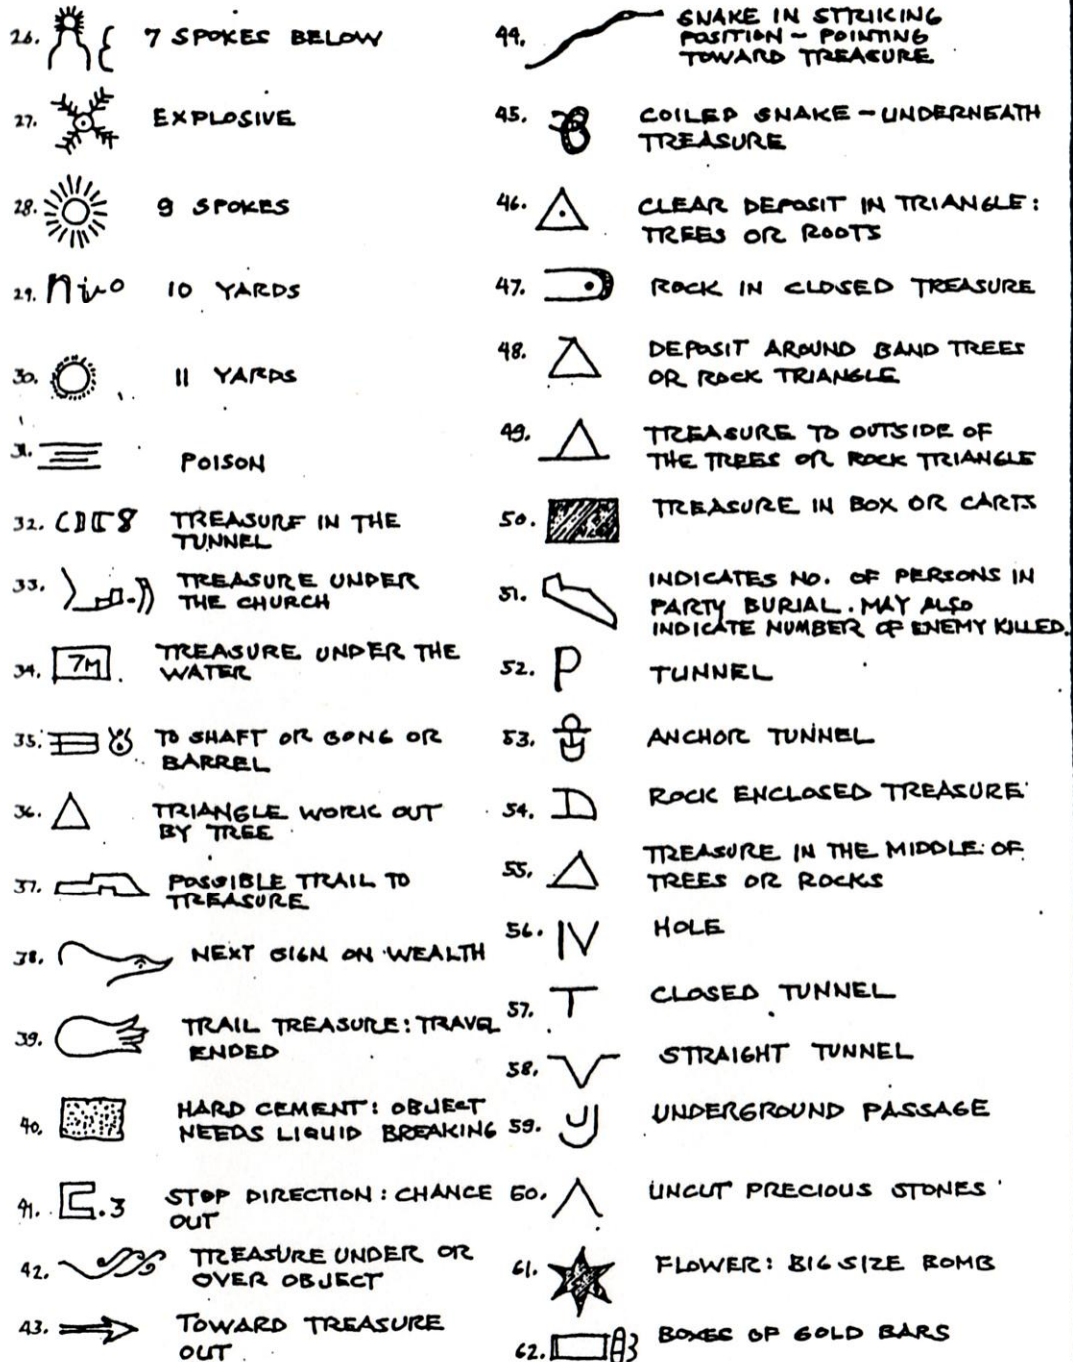 26. 7 SPOKES BELOW
27. EXPLOSIVE
28. 9 SPOKES
29. 10 YARDS
30. 11 YARDS
31. POISON
32. TREASURE IN THE
TUNNEL
33. TREASURE UNDER
THE CHURCH
34. 7M TREASURE UNDER THE
WATER
35. TO SHAFT OR GONG OR
BARREL
36. TRIANGLE WORK OUT
BY TREE
37. POSSIBLE TRAIL TO
TREASURE
38. NEXT SIGN ON WEALTH
39. TRAIL TREASURE: TRAVEL
ENDED
40. HARD CEMENT: OBJECT
NEEDS LIQUID BREAKING
41. .3 STOP DIRECTION: CHANCE
OUT
42. TREASURE UNDER OR
OVER OBJECT
43. TOWARD TREASURE
OUT
44. SNAKE IN STRIIKING
POSITION - POINTING
TOWARD TREASURE
45. COILED SNAKE - UNDERNEATH
TREASURE
46. CLEAR DEPOSIT IN TRIANGLE:
TREES OR ROOTS
47. ROCK IN CLOSED TREASURE
48. DEPOSIT AROUND BAND TREES
OR ROCK TRIANGLE
49. TREASURE TO OUTSIDE OF
THE TREES OR ROCK TRIANGLE
50. TREASURE IN BOX OR CARTS
51. INDICATES NO. OF PERSONS IN
PARTY BURIAL. MAY ALSO
INDICATE NUMBER OF ENEMY KILLED.
52. P TUNNEL
53. ANCHOR TUNNEL
54. ROCK ENCLOSED TREASURE
55. TREASURE IN THE MIDDLE OF
TREES OR ROCKS
56. IV HOLE
57. T CLOSED TUNNEL
58. STRAIGHT TUNNEL
59. UNDERGROUND PASSAGE
60. UNCUT PRECIOUS STONES
61. FLOWER: BIG SIZE BOMB
62. BOXES OF GOLD BARS